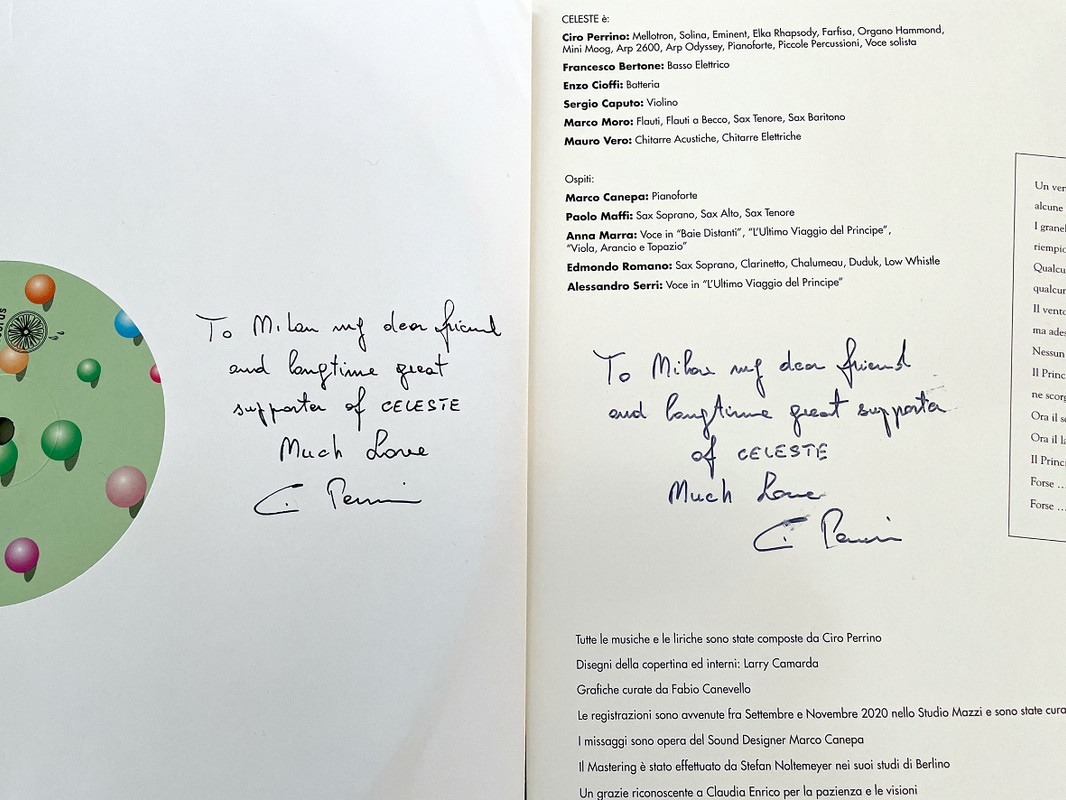 To Milan my dear friend
and longtime great
supporter of CELESTE
Much Love
C. Perrino
CELESTE è:
Ciro Perrino: Mellotron, Solina, Eminent, Elka Rhapsody, Farfisa, Organo Hammond,
Mini Moog, Arp 2600, Arp Odyssey, Pianoforte, Piccole Percussioni, Voce solista
Francesco Bertone: Basso Elettrico
Enzo Cioffi: Batteria
Sergio Caputo: Violino
Marco Moro: Flauti, Flauti a Becco, Sax Tenore, Sax Baritono
Mauro Vero: Chitarre Acustiche, Chitarre Elettriche
Ospiti:
Marco Canepa: Pianoforte
Paolo Maffi: Sax Soprano, Sax Alto, Sax Tenore
Anna Marra: Voce in “Baie Distanti”, “L’Ultimo Viaggio del Principe”,
“Viola, Arancio e Topazio”
Edmondo Romano: Sax Soprano, Clarinetto, Chalumeau, Duduk, Low Whistle
Alessandro Serri: Voce in “L’Ultimo Viaggio del Principe”
To Milan my dear friend
and longtime great supporter
of CELESTE
Much Love
C. Perrino
Tutte le musiche e le liriche sono state composte da Ciro Perrino
Disegni della copertina ed interni: Larry Camarda
Grafiche curate da Fabio Canevello
Le registrazioni sono avvenute fra Settembre e Novembre 2020 nello Studio Mazzi e sono state cura
I missaggi sono opera del Sound Designer Marco Canepa
Il Mastering è stato effettuato da Stefan Noltemeyer nei suoi studi di Berlino
Un grazie riconoscente a Claudia Enrico per la pazienza e le visioni
Un ver
alcune
I granel
riempic
Qualcu
qualcur
Il vento
ma ades
Nessun
Il Princ
ne scorg
Ora il s
Ora il la
Il Princi
Forse ...
Forse ...